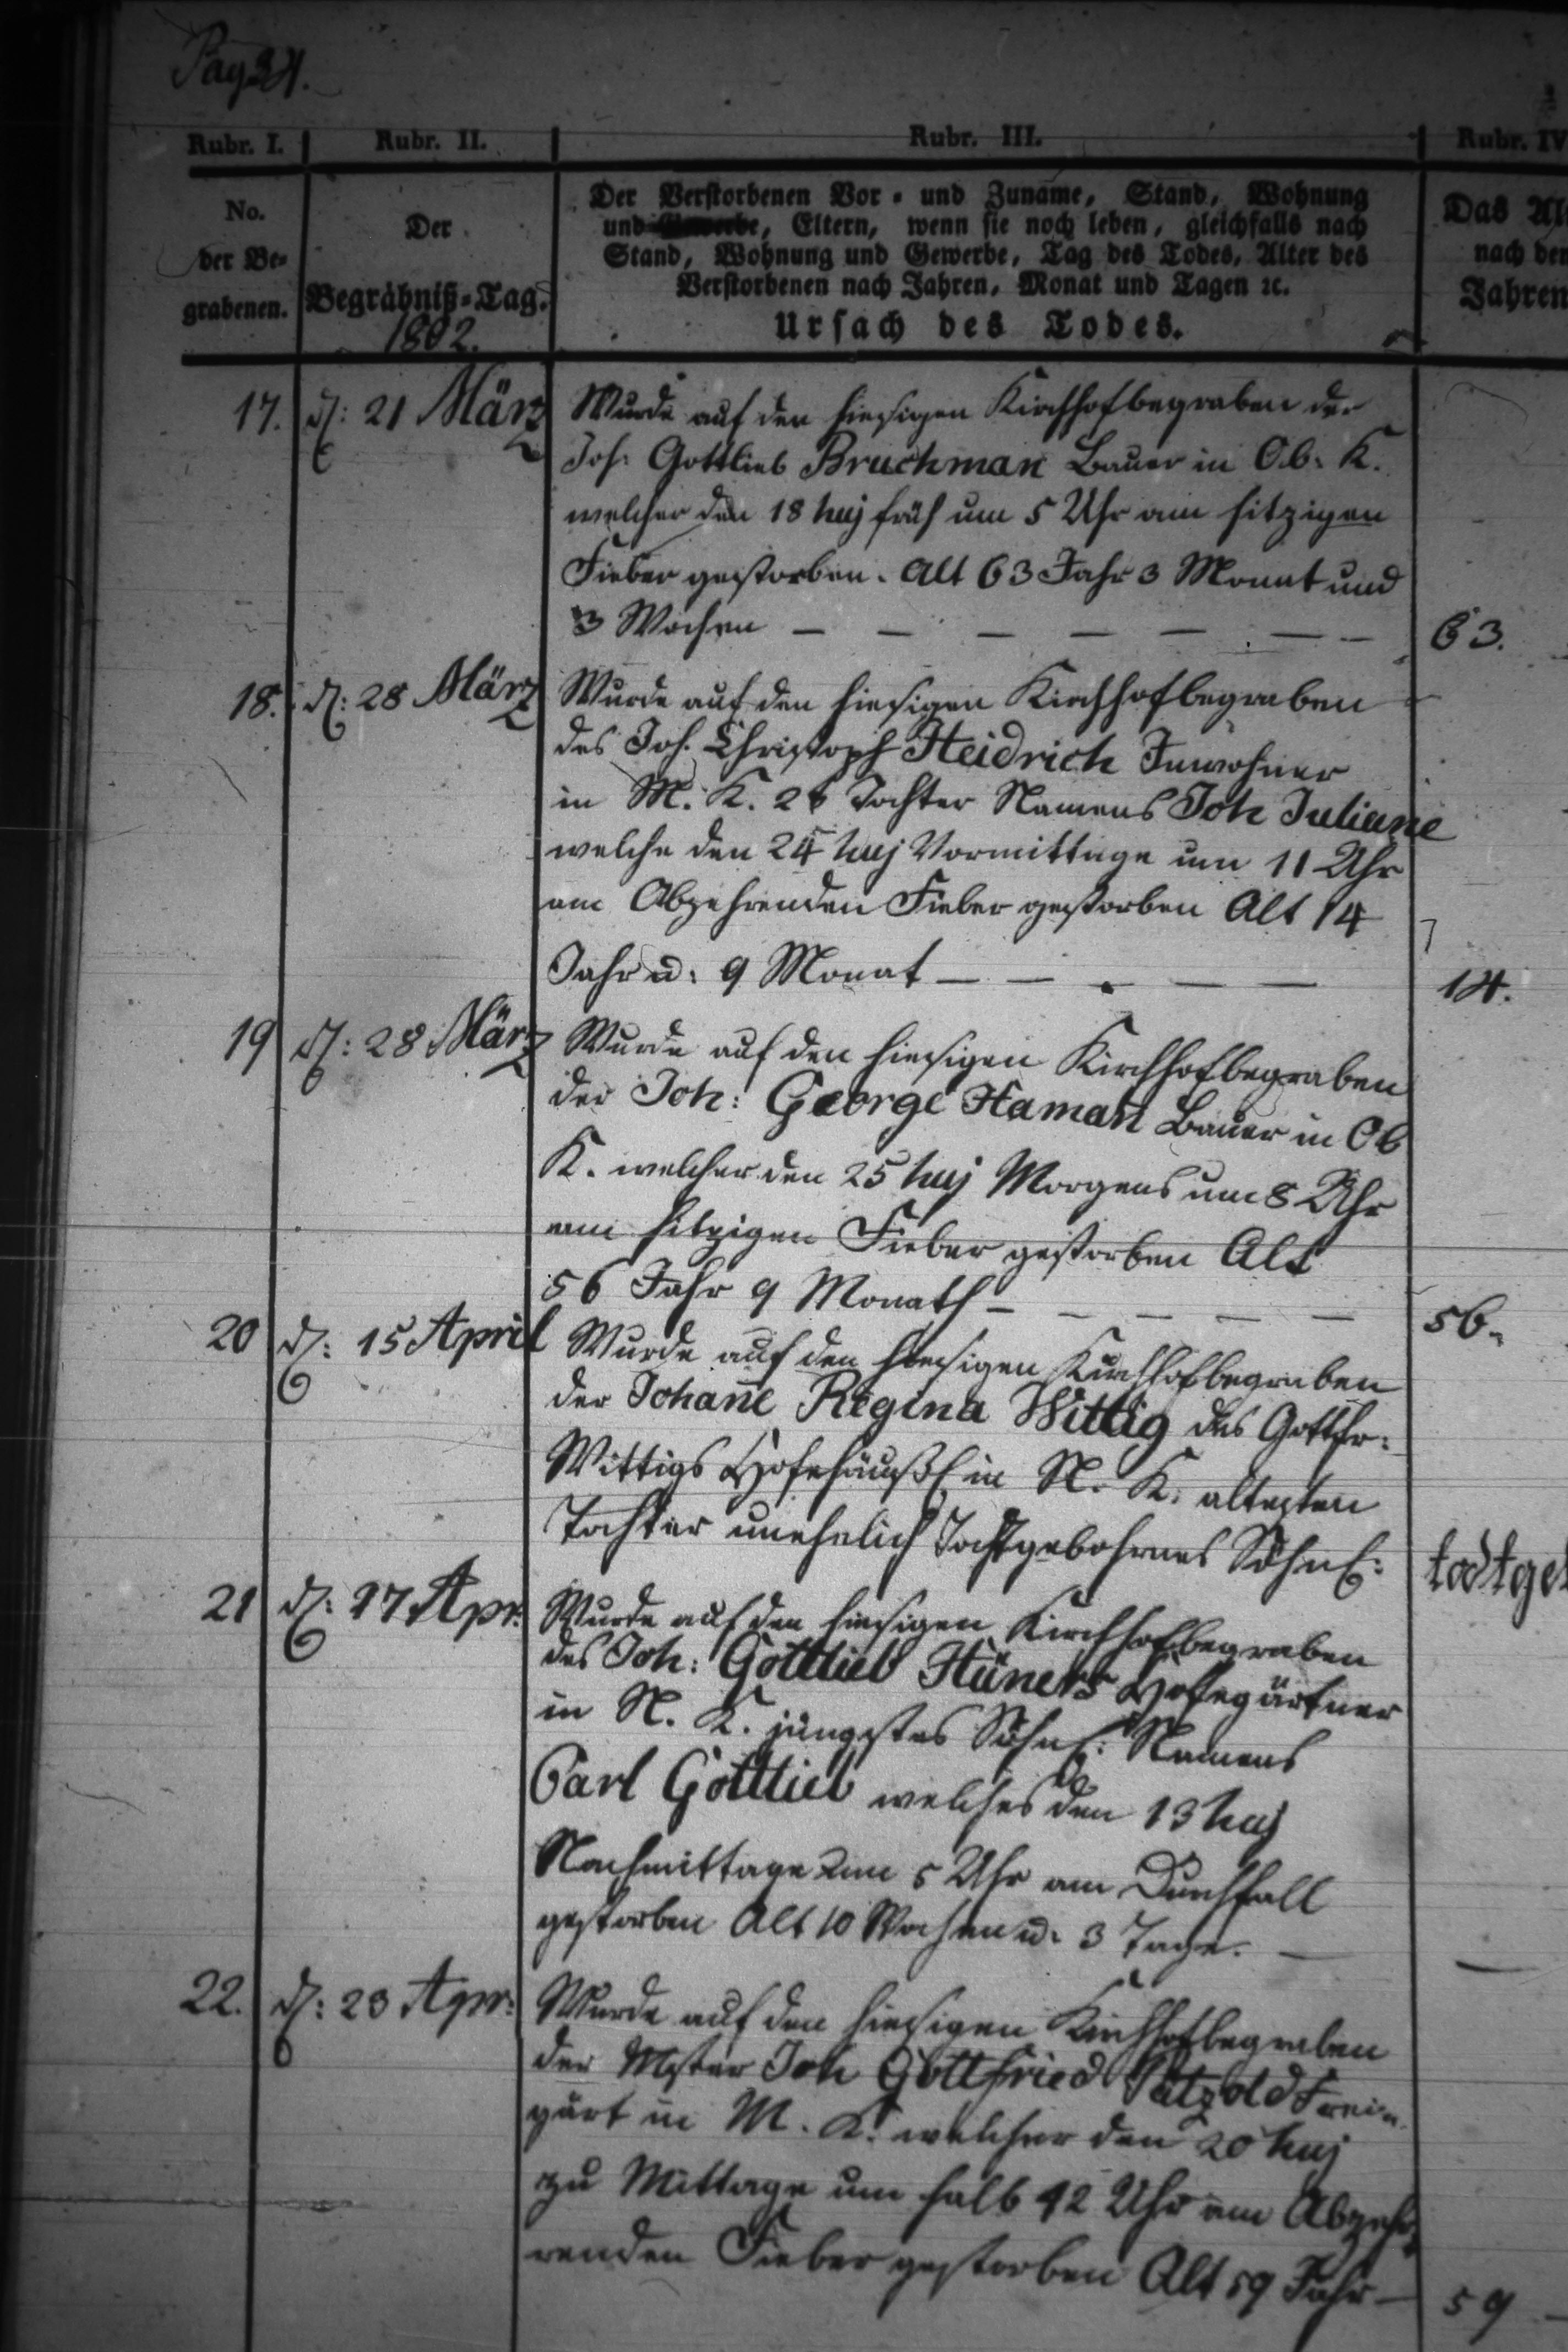 Pag 34.
Rubr. I. Rubr. II. Rubr. III. Rubr. IV
No.
der Be-
grabenen.
Der
Begräbniß-Tag.
1802.
Der Verstorbenen Vor- und Zuname, Stand, Wohnung
und Gewerbe, Eltern, wenn sie noch leben, gleichfalls nach
Stand, Wohnung und Gewerbe, Tag des Todes, Alter des
Verstorbenen nach Jahren, Monat und Tagen ꝛc.
Ursach des Todes.
Das Al
nach den
Jahren
17. d: 21 März Wurde auf den hiesigen Kirchhof begraben der
Joh: Gottlieb Bruchman̄ Bauer in Ob: K.
welcher den 18 huj früh um 5 Uhr am hitzigen
Fieber gestorben. Alt 63 Jahr 3 Monat und
3 Wochen — — — — — — — 63.
18. d: 28 März Wurde auf den hiesigen Kirchhof begraben
des Joh. Christoph Heidrich Inwohner
in M. K. 2t Tochter Namens Joh Juliane
welche den 24 huj Vormittage um 11 Uhr
am Abzehrenden Fieber gestorben Alt 14
Jahr u: 9 Monat — — — — — 14.
19 d: 28 März Wurde auf den hiesigen Kirchhof begraben
der Joh: George Haman̄ Bauer in Ob
K. welcher den 25 huj Morgens um 8 Uhr
am hitzigen Fieber gestorben Alt
56 Jahr 9 Monath — — — — — 56.
20 d: 15 April Wurde auf den hiesigen Kirchhof begraben
der Johan̄e Regina Wittig des Gottfr:
Wittigs Hofehäußl in N. K. altesten
Tochter unehelich Todtgebohrnes Söhnl: todtge
21 d: 17 Apr: Wurde auf den hiesigen Kirchhof begraben
des Joh: Gottlieb Hüners Hofegärtner
in N. K. jüngstes Söhnl: Namens
Carl Gottlieb welches den 13 huj
Nachmittage um 5 Uhr am Durchfall
gestorben Alt 10 Wochen u: 3 Tage. — —
22. d: 23 Apr: Wurde auf den hiesigen Kirchhof begraben
der Mster Joh Gottfried Pätzold Frei-
gärt in M. K. welcher den 20 huj
zu Mittage um halb 12 Uhr am Abzeh-
renden Fieber gestorben Alt 59 Jahr — 59 —